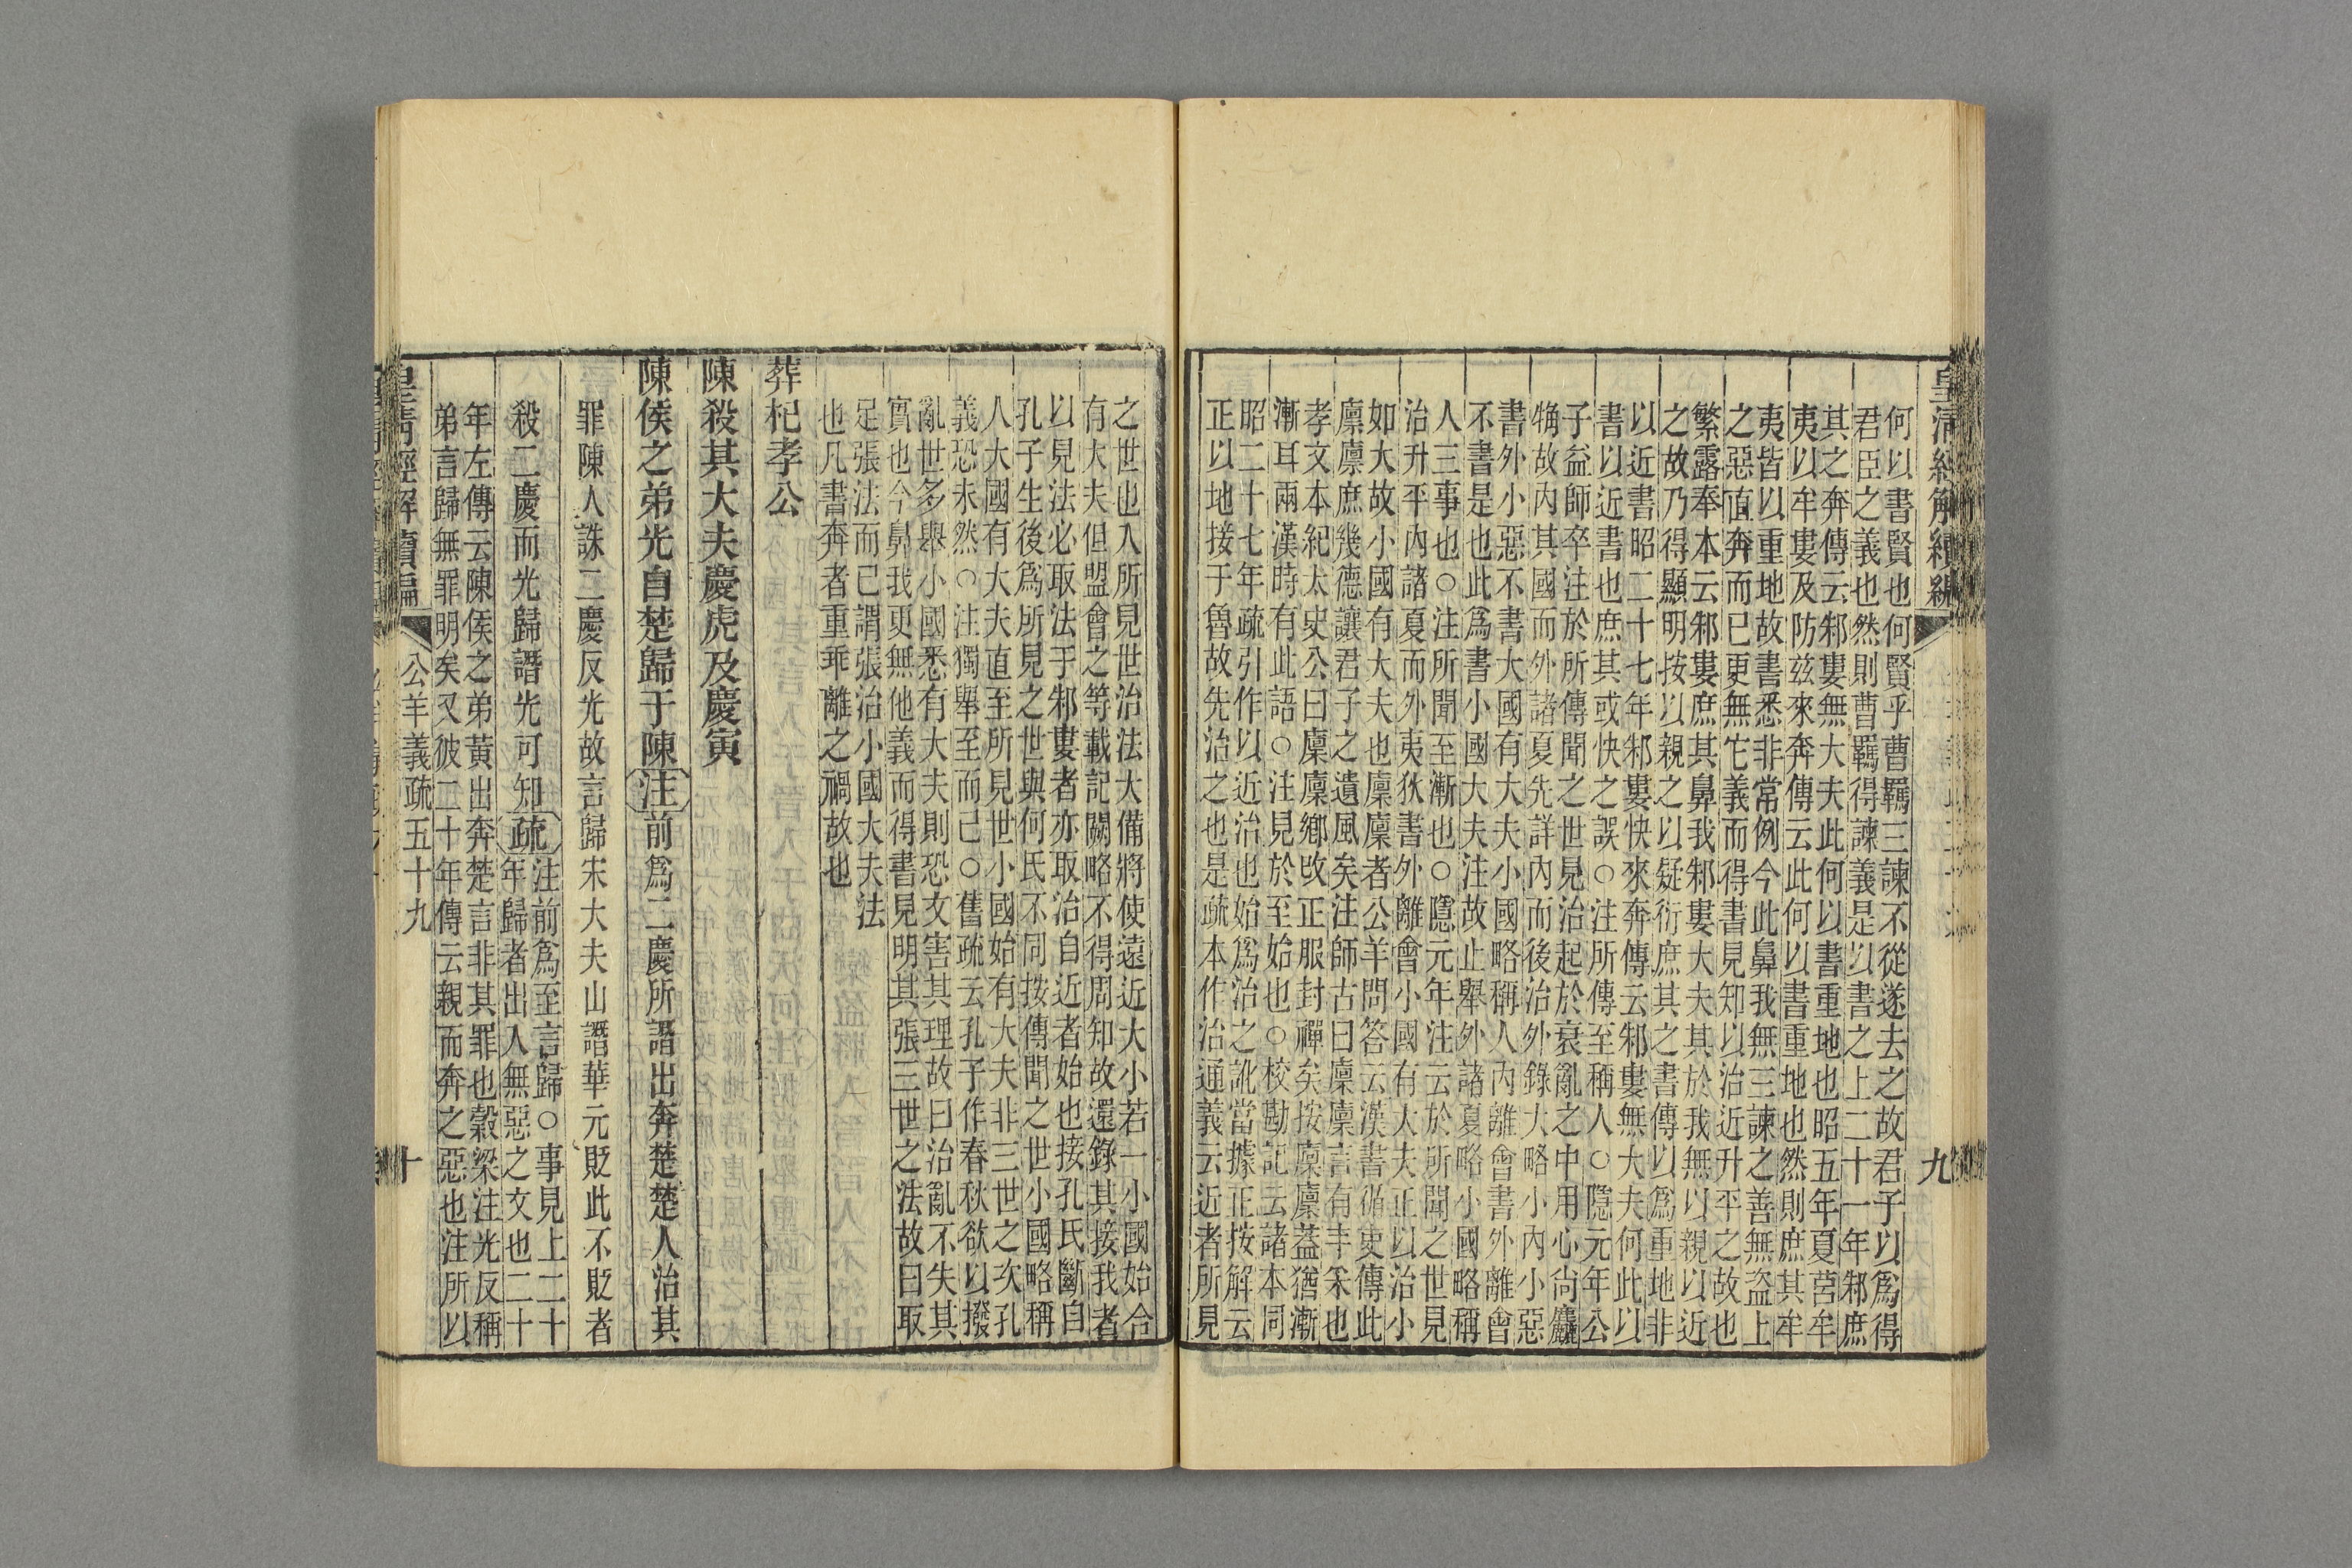 皇清經解續編
九
何以書賢也何賢乎曹羈三諫不從遂去之故君子以爲得
君臣之義也然則曹羈得諫義是以書之上二十一年邾庶
其之奔傳云邾婁無大夫此何以書重地也昭五年夏莒牟
夷以牟婁及防兹來奔傳云此何以書重地也然則庶其牟
夷皆以重地故書悉非常例今此鼻我無三諫之善無盜上
之惡直奔而已更無它義而得書見知以治近升平之故也
繁露奉本云邾婁庶其鼻我邾婁大夫其於我無以親以近
之故乃得顯明按以親之以疑衍庶其之書傳以爲重地非
以近書昭二十七年邾婁快來奔傳云邾婁無大夫何此以
書以近書也庶其或快之誤○注所傳至稱人○隱元年公
子益師卒注於所傳聞之世見治起於衰亂之中用心尙麤
觕故內其國而外諸夏先詳內而後治外錄大略小內小惡
書外小惡不書大國有大夫小國略稱人內離會書外離會
不書是也此爲書小國大夫注故止舉外諸夏略小國略稱
人三事也○注所聞至漸也○隱元年注云於所聞之世見
治升平內諸夏而外夷狄書外離會小國有大夫正以治小
如大故小國有大夫也廩廩者公羊問答云漢書循吏傳此
廩廩庶幾德讓君子之遺風矣注師古曰廩廩言有丰采也
孝文本紀太史公曰廩廩鄉改正服封禪矣按廩廩蓋猶漸
漸耳兩漢時有此語○注見於至始也○校勘記云諸本同
昭二十七年疏引作以近治也始爲治之訛當據正按解云
正以地接于魯故先治之也是疏本作治通義云近者所見
之世也入所見世治法大備將使遠近大小若一小國始合
有大夫但盟會之等載記闕略不得周知故還錄其接我者
以見法必取法于邾婁者亦取治自近者始也接孔氏斷自
孔子生後爲所見之世與何氏不同按傳聞之世小國略稱
人大國有大夫直至所見世小國始有大夫非三世之次孔
義恐未然○注獨舉至而已○舊疏云孔子作春秋欲以撥
亂世多舉小國悉有大夫則恐文害其理故曰治亂不失其
實也今鼻我更無他義而得書見明其張三世之法故曰取
足張法而已謂張治小國大夫法
也凡書奔者重乖離之禍故也
葬杞孝公
陳殺其大夫慶虎及慶寅
陳侯之弟光自楚歸于陳注前爲二慶所譖出奔楚楚人治其
罪陳人誅二慶反光故言歸宋大夫山譖華元貶此不貶者
殺二慶而光歸譖光可知疏注前爲至言歸○事見上二十
年歸者出入無惡之文也二十
年左傳云陳侯之弟黃出奔楚言非其罪也穀梁注光反稱
弟言歸無罪明矣又彼二十年傳云親而奔之惡也注所以
皇清經解續編
公羊義疏五十九
十